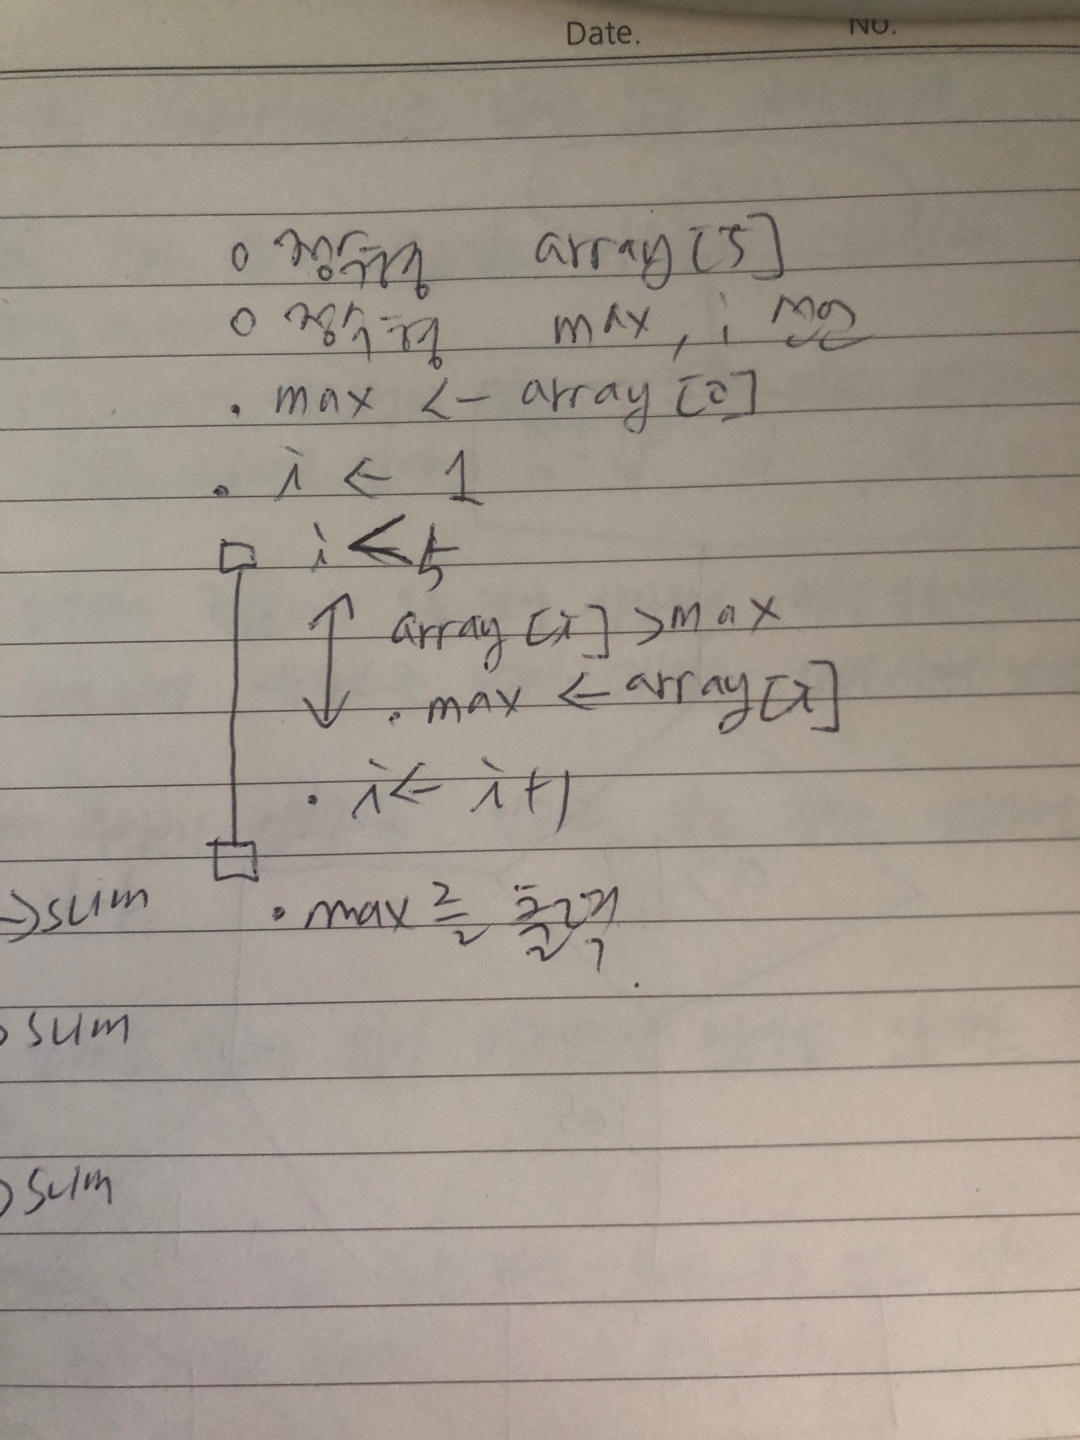 Date. NO.
o 정수형 array[5]
o 정수형 max, i
. max <- array[0]
. i ← 1
i < 5
array[i] > max
. max ← array[i]
. i ← i+1
→ sum
• max를 출력
sum
sum